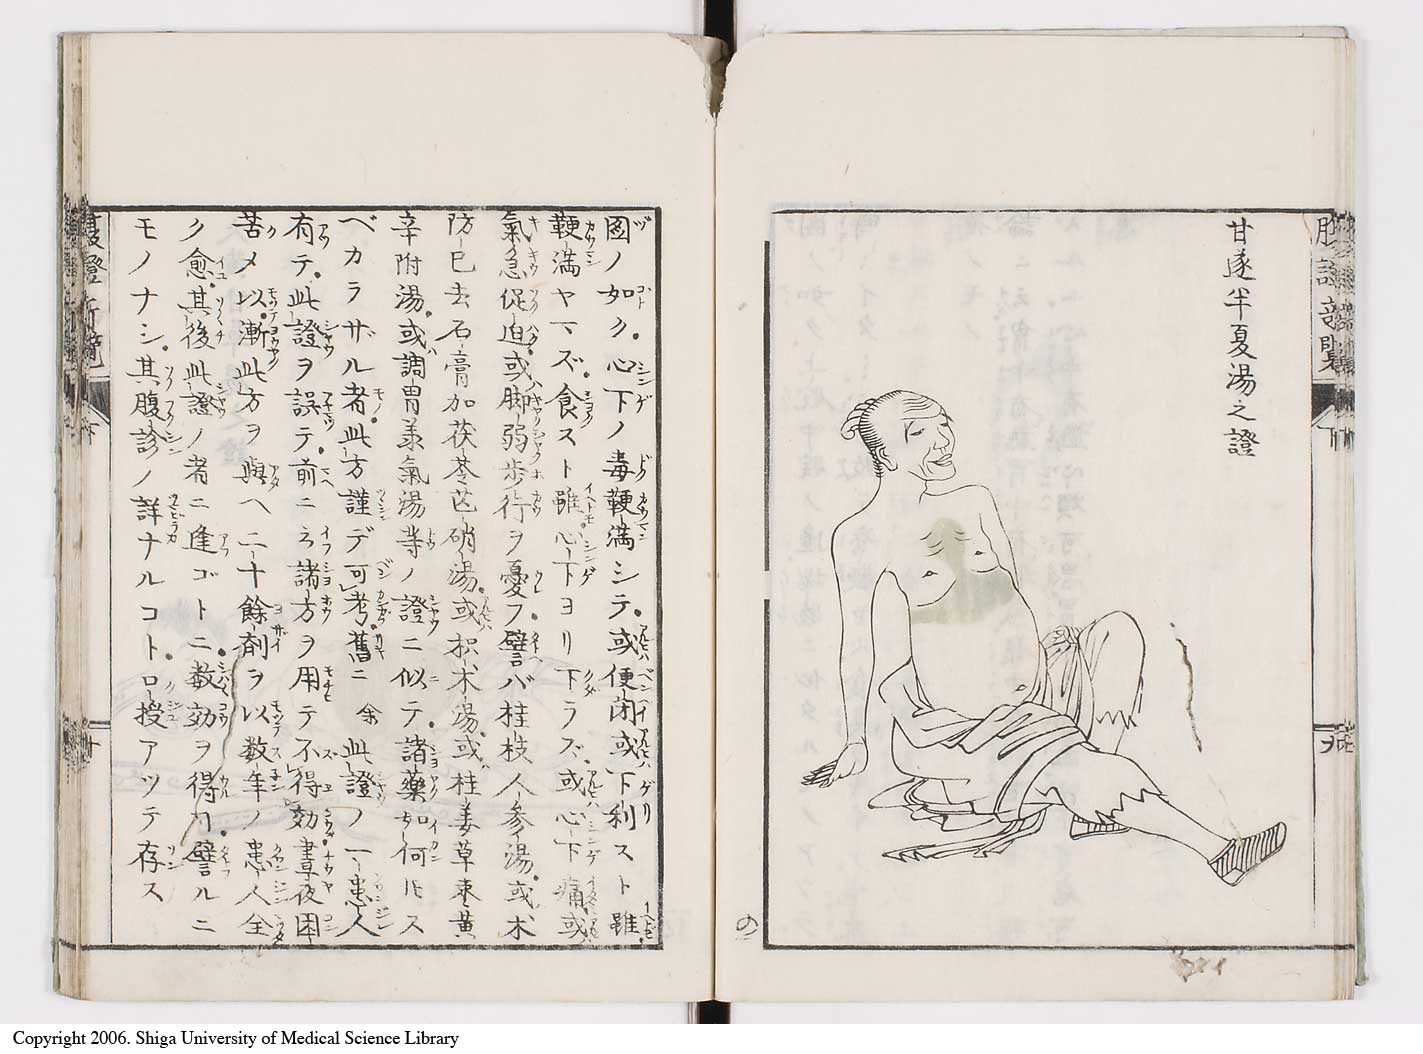 甘遂半夏湯之證
圖ノ如ク心下ノ毒鞕満シテ或便閉或下利スト雖
鞕満ヤマズ食スト雖心下ヨリ下ラズ或心下痛或
氣急促迫或脚弱歩行ヲ憂フ譬バ桂枝人参湯或木
防已去石膏加茯苓芒硝湯或枳朮湯或桂姜草棗黄
辛附湯或調胃羕氣湯等ノ證ニ似テ諸藥如何トモス
ベカラザル者此方謹デ可考舊ニ余此證ノ一患人
有テ此證ヲ誤テ前ニ云諸方ヲ用テ不得効晝夜困
苦メ以漸此方ヲ與ヘ二十餘剤ヲ以数年ノ患人全
ク愈其後此證ノ者ニ逢ゴトニ数効ヲ得リ譬ルニ
モノナシ其腹診ノ詳ナルコト口授アツテ存ス
Copyright 2006. Shiga University of Medical Science Library